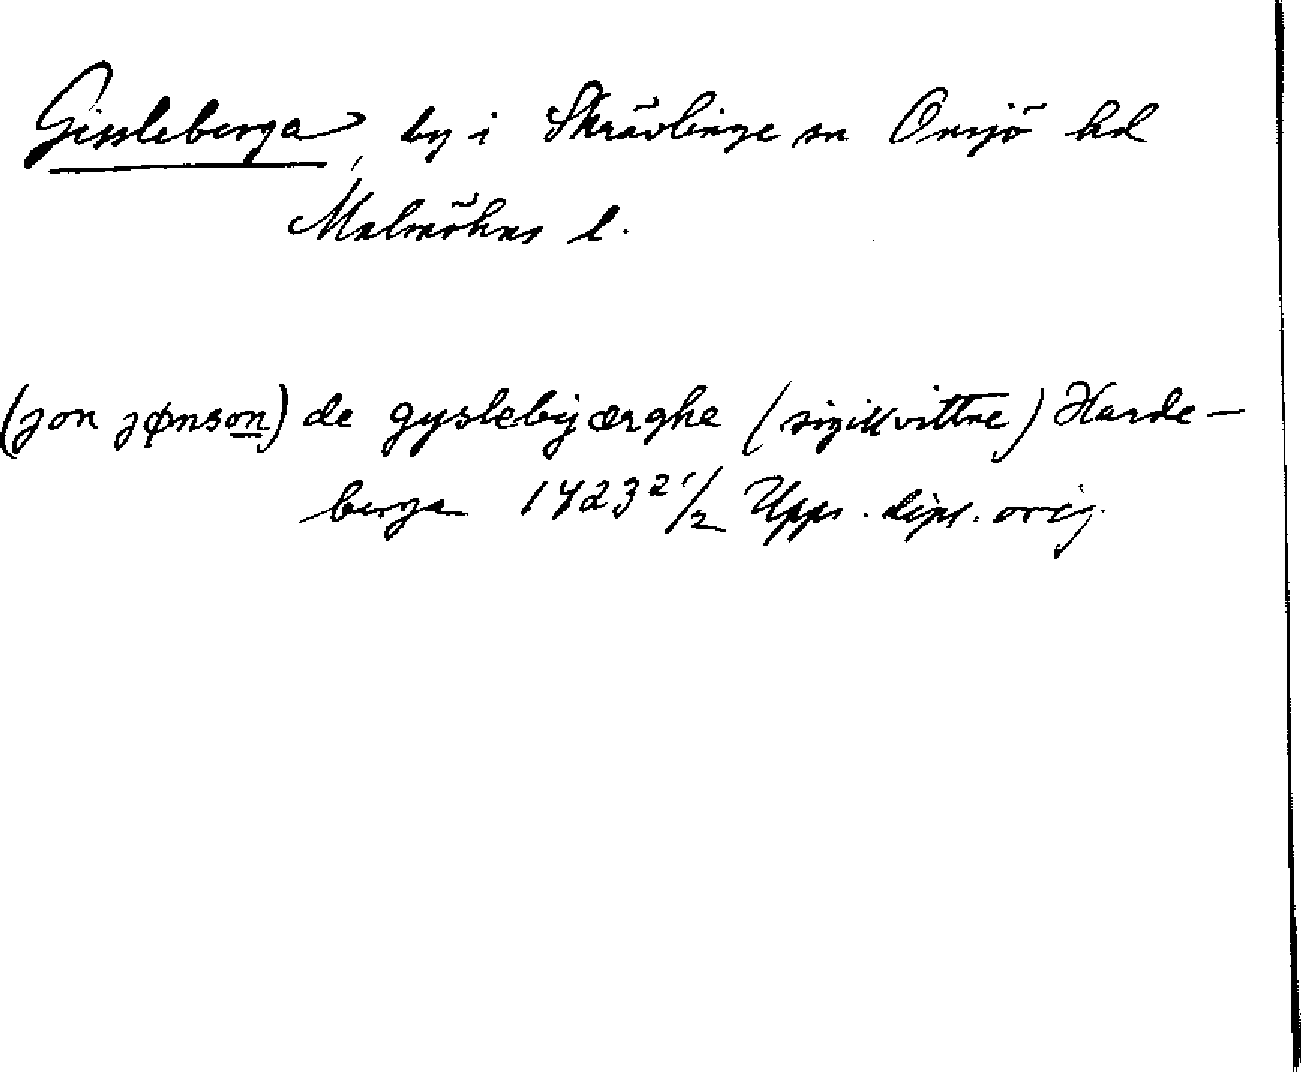 Gissleberga, by i Skrävlinge sn Onsjö hd
Malmöhus l.
(jon jønson) de gyslebyærghe (sigillvittne) Harde-
berga 1423 21/2 Upps. dipl. orig.